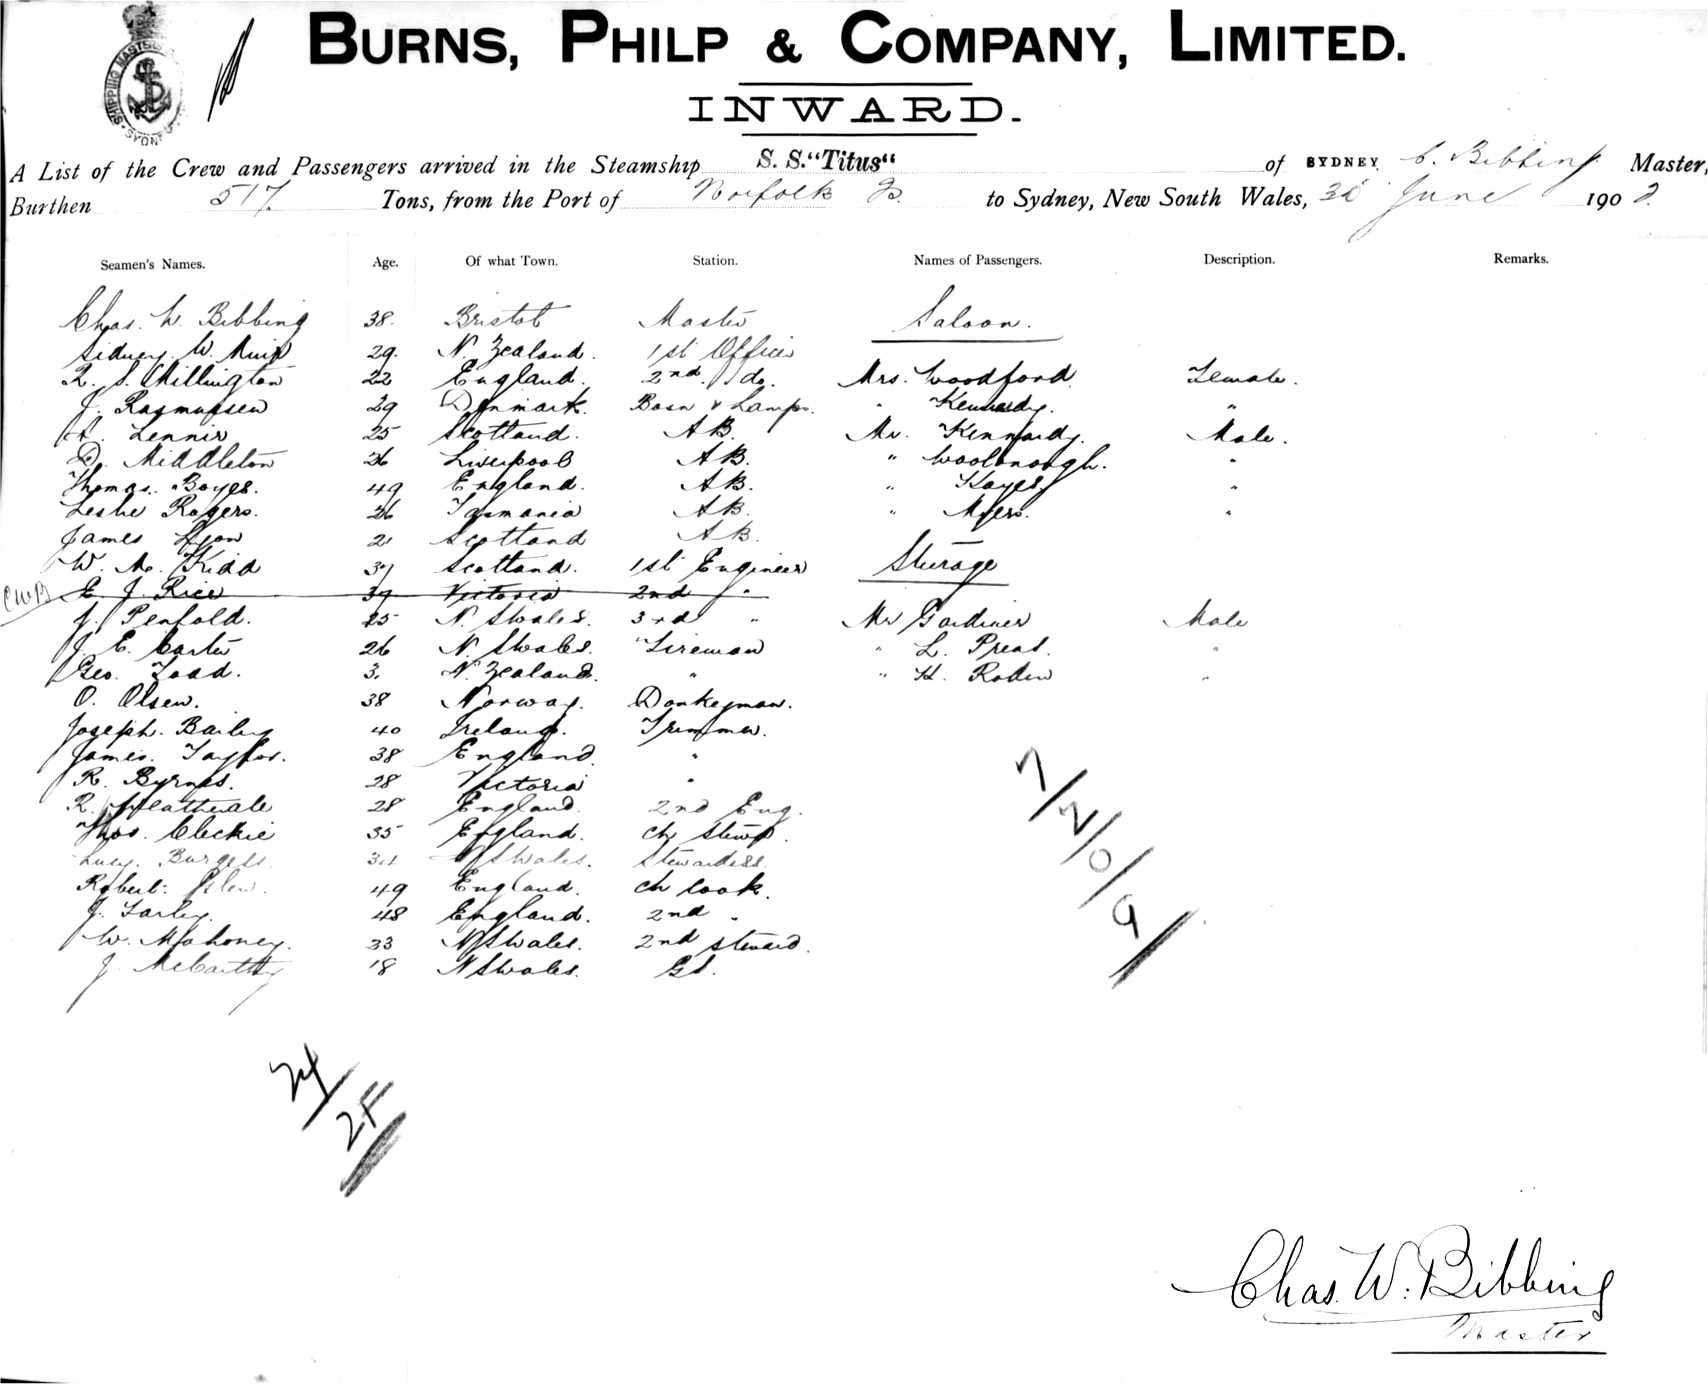 SHIPPING MASTER
SYDNEY
BURNS, PHILP & COMPANY, LIMITED.
INWARD.
A List of the Crew and Passengers arrived in the Steamship S. S. "Titus" of SYDNEY. C. Bibbing Master,
Burthen 517 Tons, from the Port of Norfolk Is. to Sydney, New South Wales, 30 June 1902
Seamen's Names. Age. Of what Town. Station. Names of Passengers. Description. Remarks.
Chas. W. Bibbing 38. Bristol Master Saloon.
Sidney W. Muir 29. N. Zealand. 1st Officer
R. S. Millington 22 England. 2nd do. Mrs. Woodford Female.
J. Rasmussen 29 Denmark. Bosn & Lamps. " Kennedy. "
A. Lennie 25 Scotland. AB. Mr. Kennedy. Male.
D. Middleton 26 Liverpool AB. " Woolonough. "
Thomas. Boyes. 49 England. AB. " Kayes "
Leslie Rogers. 26 Tasmania AB. " Myers. "
James Lyon 21 Scotland AB.
W. M. Kidd 37 Scotland. 1st Engineer Sturage
CWB E. J. Rice 39 Victoria 2nd "
J. Penfold. 25 N. S Wales. 3rd " Mr Gardiner Male
J. E. Carter 26 N. S Wales. Fireman " L. Preat. "
Geo. Toad. 3. N. Zealand. " " H. Robin "
O. Olsen. 38 Norway. Donkeyman.
Joseph. Bailey 40 Ireland. Trimmer.
James. Taylor. 38 England. "
R. Byrnes. 28 Victoria "
R. Weatherale 28 England. 2nd Eng.
Thos. Cleckie 35 England. Ch Stewd.
Lucy. Burgess. 31 N S Wales. Stewardess
Robert. 49 England. Ch Cook.
J. Farley. 48 England. 2nd "
W. Mahoney. 33 N S Wales. 2nd Steward.
J. McCarthy 18 N S Wales. GS.
7/2/0/9
24/2F
Chas. W. Bibbing
Master